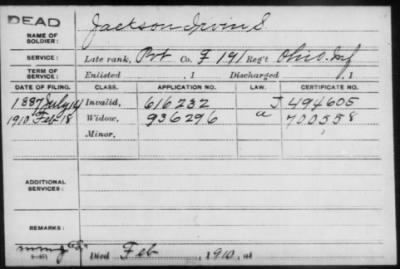 DEAD
NAME OF SOLDIER: Jackson Irvin S
SERVICE: Late rank, Pvt Co. F 191 Reg't Ohio Inf
TERM OF SERVICE: Enlisted , 1 Discharged , 1
DATE OF FILING. CLASS. APPLICATION NO. LAW. CERTIFICATE NO.
1887 July 14 Invalid, 616232 J 494605
1910 Feb 18 Widow, 936296 a 700558
Minor,
ADDITIONAL SERVICES:
REMARKS:
Died Feb , 1910, at